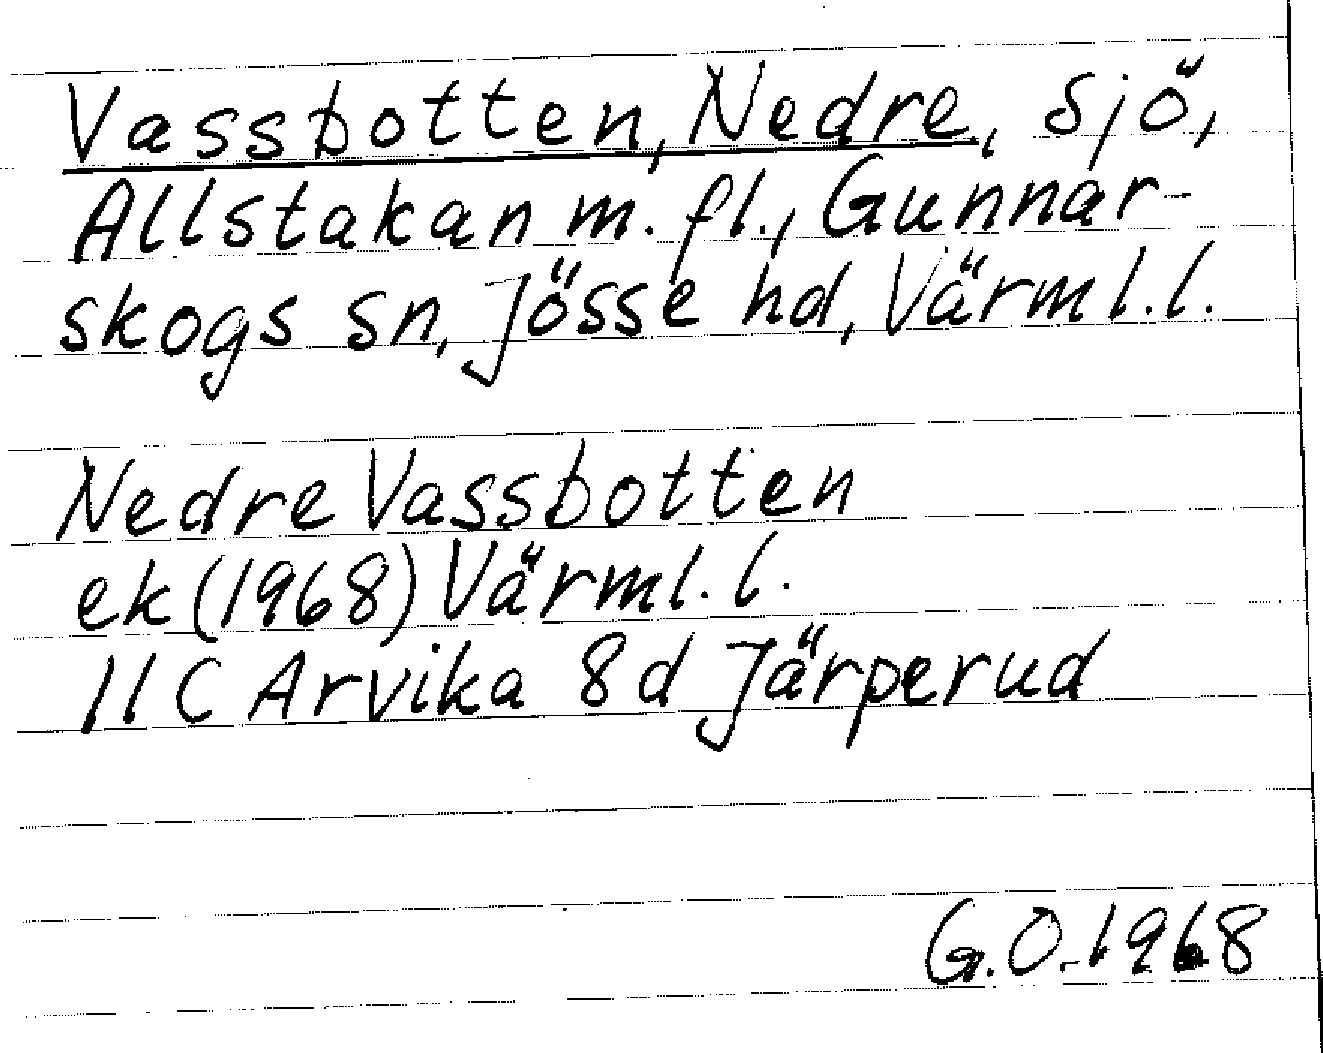 Vassbotten, Nedre, sjö,
Allstakan m. fl., Gunnar-
skogs sn, Jösse hd, Värml. l.
Nedre Vassbotten
ek (1968) Värml. l.
11 C Arvika 8 d Järperud
G. O. 1968